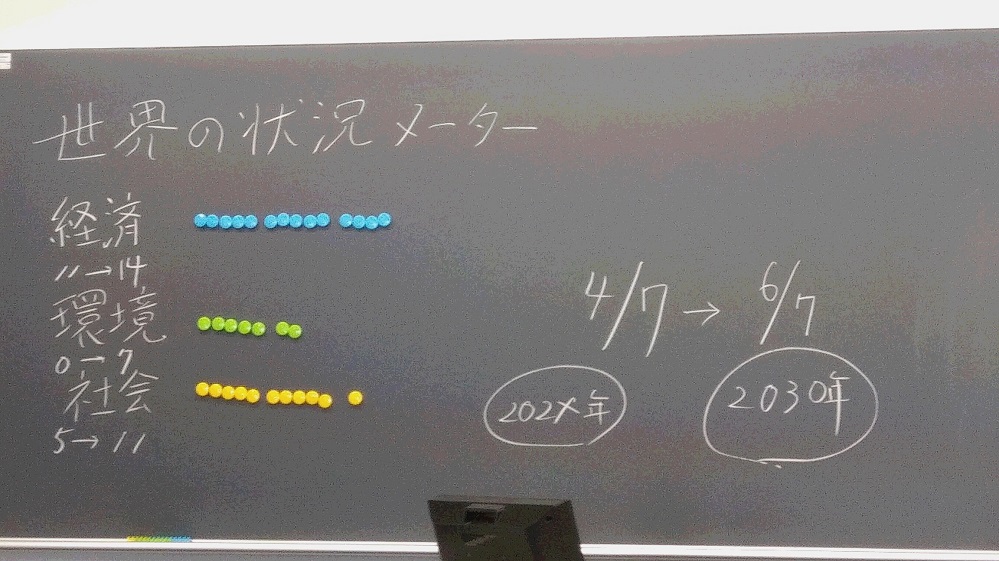 世界の状況メーター
経済
11→14
環境
0→7
社会
5→11
4/7→6/7
202X年
2030年